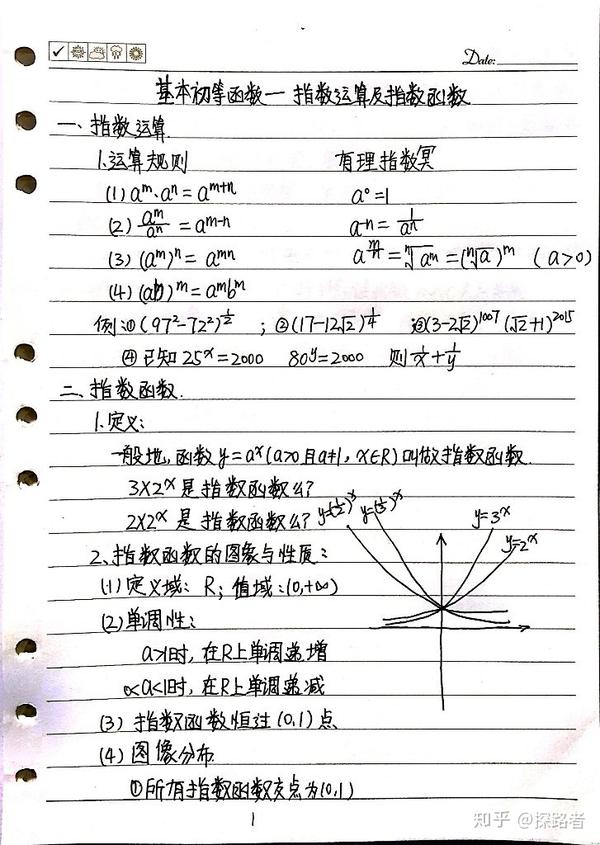 Date:
基本初等函数一 指数运算及指数函数
一、指数运算
1.运算规则 有理指数冥
(1) aᵐ·aⁿ = aᵐ⁺ⁿ a⁰=1
(2) aᵐ/aⁿ = aᵐ⁻ⁿ a⁻ⁿ = 1/aⁿ
(3) (aᵐ)ⁿ = aᵐⁿ a^(m/n) = ⁿ√aᵐ = (ⁿ√a)ᵐ (a>0)
(4) (ab)ᵐ = aᵐbᵐ
例:①(97²-72²)^(1/2) ; ②(17-12√2)^(1/4) ③(3-2√2)¹⁰⁰⁷(√2+1)²⁰¹⁵
④已知25ˣ=2000 80ʸ=2000 则1/x+1/y
二、指数函数.
1.定义:
一般地,函数y=aˣ(a>0且a≠1, x∈R)叫做指数函数.
3×2ˣ是指数函数么?
2×2ˣ是指数函数么?
y=(1/2)ˣ y=(1/3)ˣ y=3ˣ
y=2ˣ
2、指数函数的图象与性质:
(1)定义域: R; 值域:(0,+∞)
(2)单调性:
a>1时,在R上单调递增
0<a<1时,在R上单调递减
(3) 指数函数恒过(0,1)点
(4)图像分布.
①所有指数函数交点为(0,1)
1
知乎 @探路者